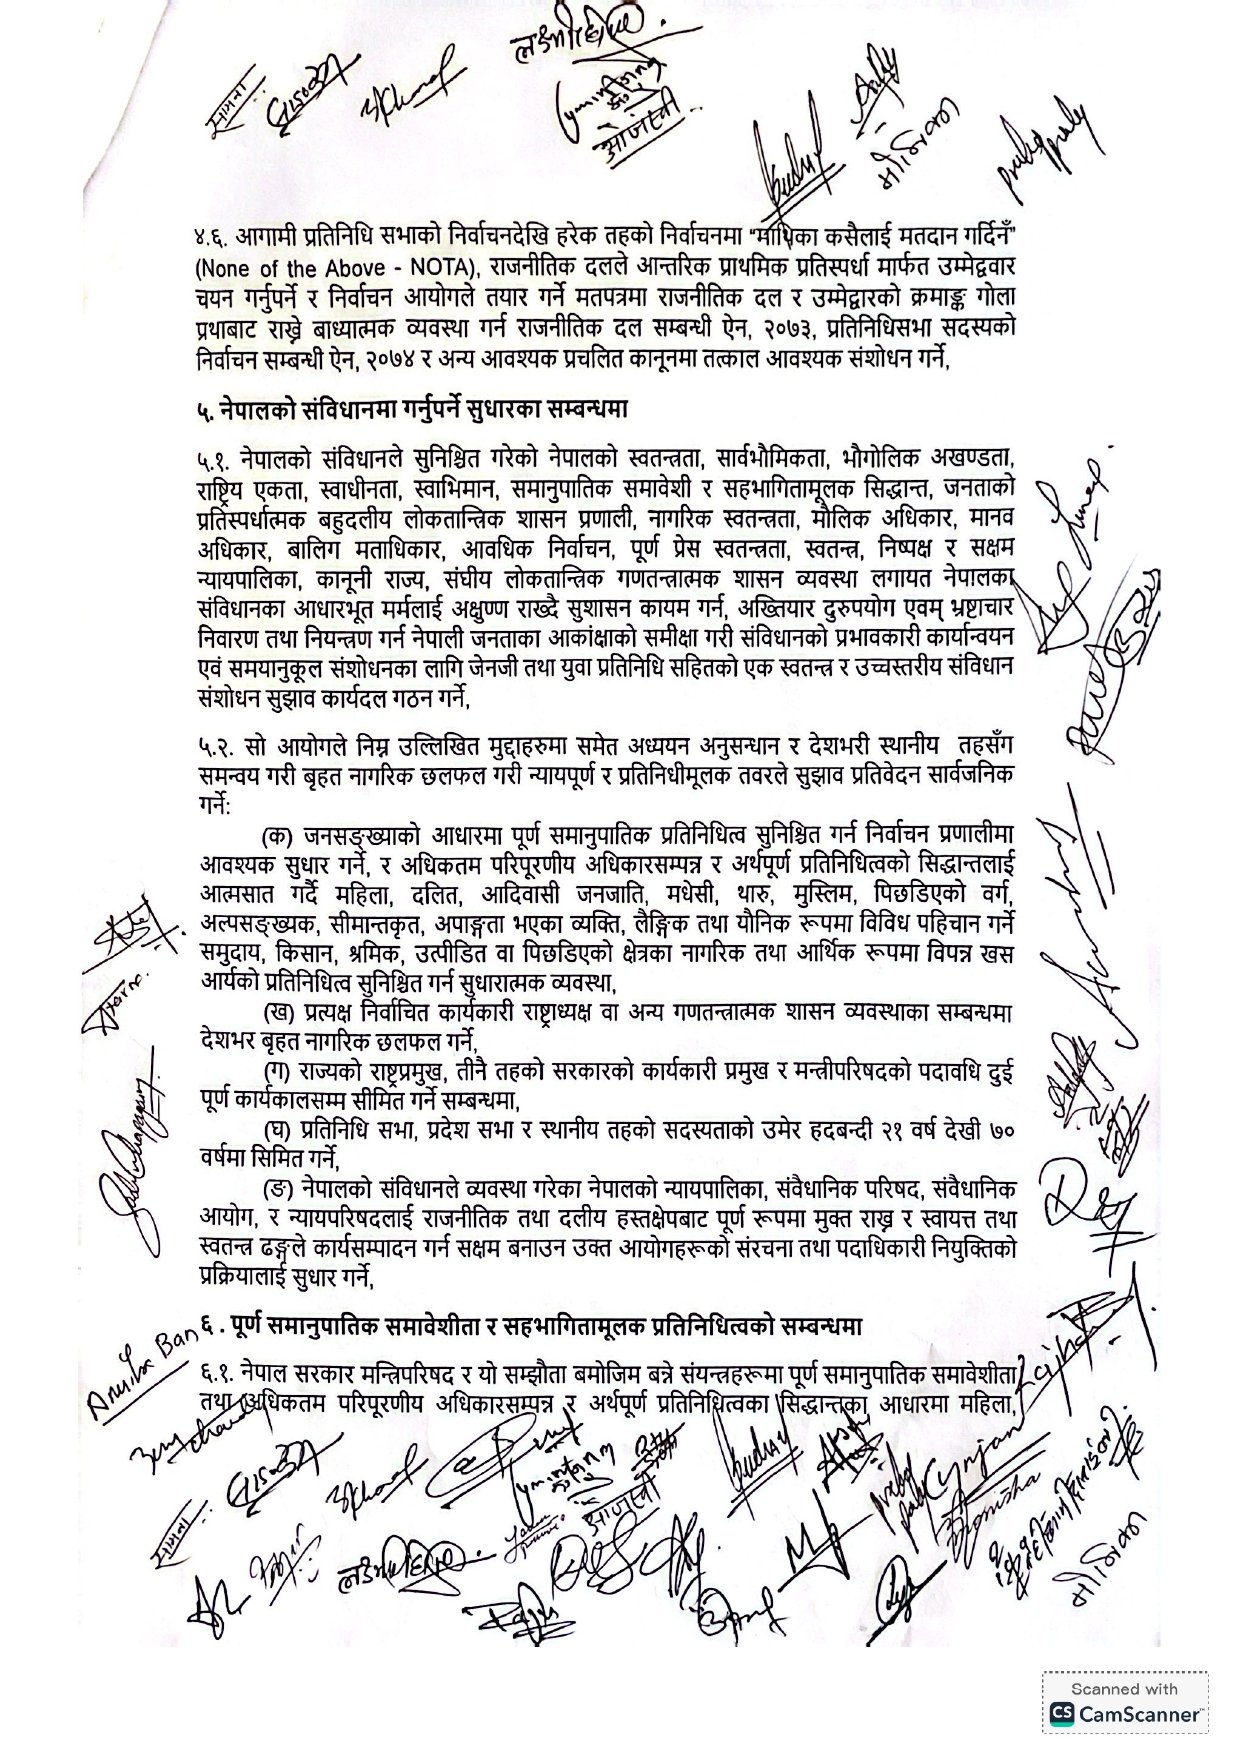 सामना
लक्ष्मी
ओजस्वी
मोनिका
४.६. आगामी प्रतिनिधि सभाको निर्वाचनदेखि हरेक तहको निर्वाचनमा "माथिका कसैलाई मतदान गर्दिनँ"
(None of the Above - NOTA), राजनीतिक दलले आन्तरिक प्राथमिक प्रतिस्पर्धा मार्फत उम्मेद्ववार
चयन गर्नुपर्ने र निर्वाचन आयोगले तयार गर्ने मतपत्रमा राजनीतिक दल र उम्मेद्वारको क्रमाङ्क गोला
प्रथाबाट राख्ने बाध्यात्मक व्यवस्था गर्न राजनीतिक दल सम्बन्धी ऐन, २०७३, प्रतिनिधिसभा सदस्यको
निर्वाचन सम्बन्धी ऐन, २०७४ र अन्य आवश्यक प्रचलित कानूनमा तत्काल आवश्यक संशोधन गर्ने,
५. नेपालको संविधानमा गर्नुपर्ने सुधारका सम्बन्धमा
५.१. नेपालको संविधानले सुनिश्चित गरेको नेपालको स्वतन्त्रता, सार्वभौमिकता, भौगोलिक अखण्डता,
राष्ट्रिय एकता, स्वाधीनता, स्वाभिमान, समानुपातिक समावेशी र सहभागितामूलक सिद्धान्त, जनताको
प्रतिस्पर्धात्मक बहुदलीय लोकतान्त्रिक शासन प्रणाली, नागरिक स्वतन्त्रता, मौलिक अधिकार, मानव
अधिकार, बालिग मताधिकार, आवधिक निर्वाचन, पूर्ण प्रेस स्वतन्त्रता, स्वतन्त्र, निष्पक्ष र सक्षम
न्यायपालिका, कानूनी राज्य, संघीय लोकतान्त्रिक गणतन्त्रात्मक शासन व्यवस्था लगायत नेपालका
संविधानका आधारभूत मर्मलाई अक्षुण्ण राख्दै सुशासन कायम गर्न, अख्तियार दुरुपयोग एवम् भ्रष्टाचार
निवारण तथा नियन्त्रण गर्न नेपाली जनताका आकांक्षाको समीक्षा गरी संविधानको प्रभावकारी कार्यान्वयन
एवं समयानुकूल संशोधनका लागि जेनजी तथा युवा प्रतिनिधि सहितको एक स्वतन्त्र र उच्चस्तरीय संविधान
संशोधन सुझाव कार्यदल गठन गर्ने,
५.२. सो आयोगले निम्न उल्लिखित मुद्दाहरुमा समेत अध्ययन अनुसन्धान र देशभरी स्थानीय तहसँग
समन्वय गरी बृहत नागरिक छलफल गरी न्यायपूर्ण र प्रतिनिधीमूलक तवरले सुझाव प्रतिवेदन सार्वजनिक
गर्ने:
(क) जनसङ्ख्याको आधारमा पूर्ण समानुपातिक प्रतिनिधित्व सुनिश्चित गर्न निर्वाचन प्रणालीमा
आवश्यक सुधार गर्ने, र अधिकतम परिपूरणीय अधिकारसम्पन्न र अर्थपूर्ण प्रतिनिधित्वको सिद्धान्तलाई
आत्मसात गर्दै महिला, दलित, आदिवासी जनजाति, मधेसी, थारु, मुस्लिम, पिछडिएको वर्ग,
अल्पसङ्ख्यक, सीमान्तकृत, अपाङ्गता भएका व्यक्ति, लैङ्गिक तथा यौनिक रूपमा विविध पहिचान गर्ने
समुदाय, किसान, श्रमिक, उत्पीडित वा पिछडिएको क्षेत्रका नागरिक तथा आर्थिक रूपमा विपन्न खस
आर्यको प्रतिनिधित्व सुनिश्चित गर्न सुधारात्मक व्यवस्था,
(ख) प्रत्यक्ष निर्वाचित कार्यकारी राष्ट्राध्यक्ष वा अन्य गणतन्त्रात्मक शासन व्यवस्थाका सम्बन्धमा
देशभर बृहत नागरिक छलफल गर्ने,
(ग) राज्यको राष्ट्रप्रमुख, तीनै तहको सरकारको कार्यकारी प्रमुख र मन्त्रीपरिषदको पदावधि दुई
पूर्ण कार्यकालसम्म सीमित गर्ने सम्बन्धमा,
(घ) प्रतिनिधि सभा, प्रदेश सभा र स्थानीय तहको सदस्यताको उमेर हदबन्दी २१ वर्ष देखी ७०
वर्षमा सिमित गर्ने,
(ङ) नेपालको संविधानले व्यवस्था गरेका नेपालको न्यायपालिका, संवैधानिक परिषद, संवैधानिक
आयोग, र न्यायपरिषदलाई राजनीतिक तथा दलीय हस्तक्षेपबाट पूर्ण रूपमा मुक्त राख्न र स्वायत्त तथा
स्वतन्त्र ढङ्गले कार्यसम्पादन गर्न सक्षम बनाउन उक्त आयोगहरूको संरचना तथा पदाधिकारी नियुक्तिको
प्रक्रियालाई सुधार गर्ने,
६ . पूर्ण समानुपातिक समावेशीता र सहभागितामूलक प्रतिनिधित्वको सम्बन्धमा
६.१. नेपाल सरकार मन्त्रिपरिषद र यो सम्झौता बमोजिम बन्ने संयन्त्रहरूमा पूर्ण समानुपातिक समावेशीता
तथा अधिकतम परिपूरणीय अधिकारसम्पन्न र अर्थपूर्ण प्रतिनिधित्वका सिद्धान्तका आधारमा महिला,
Ban
सामना
ओजस्वी
Monisha
Scanned with
CS CamScanner